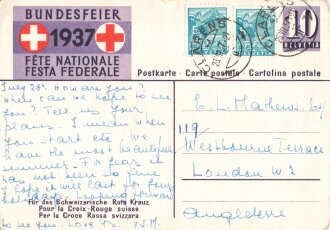 BUNDESFEIER
1937
FÊTE NATIONALE
FESTA FEDERALE
10
HELVETIA
Postkarte - Carte postale - Cartolina postale
July 28th. How are you?
When can we hope to see
you? Tell us your
plans. I mean when
you start etc. We
have the most beautiful
summer. For years it
has not been so fine
I hope it will last for your
holidays. Looking forward
to see you - Love
E. L. Mathews Esq
119
Westbourne Terrace
London W2
Angleterre
Für das Schweizerische Rote Kreuz
Pour la Croix-Rouge suisse
Per la Croce Rossa svizzera